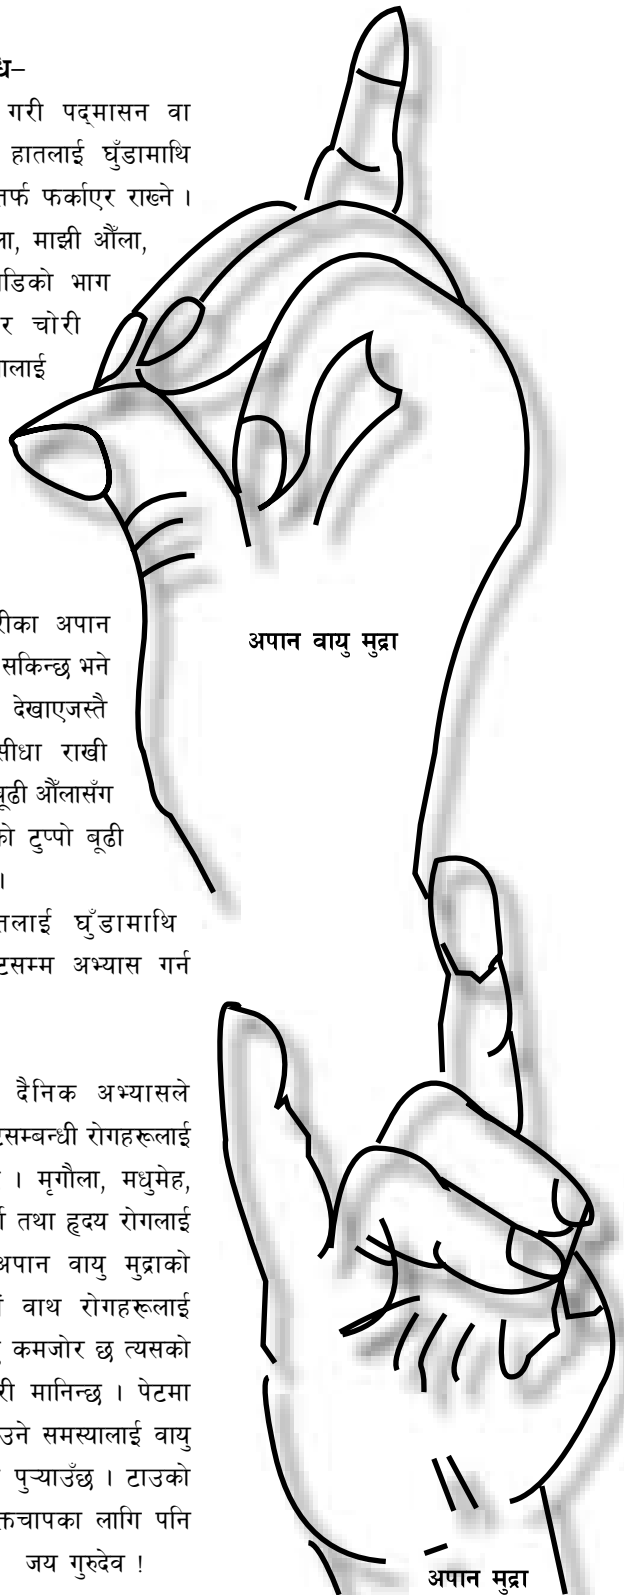 धि–
गरी पद्मासन वा
हातलाई घुँडामाथि
तर्फ फर्काएर राख्ने ।
ला, माझी औँला,
डिको भाग
र चोरी
लाई
रीका अपान
सकिन्छ भने
देखाएजस्तै
सीधा राखी
बूढी औँलासँग
को टुप्पो बूढी
।
तलाई घुँडामाथि
टसम्म अभ्यास गर्न
अपान वायु मुद्रा
दैनिक अभ्यासले
टसम्बन्धी रोगहरूलाई
। मृगौला, मधुमेह,
तथा हृदय रोगलाई
अपान वायु मुद्राको
वाथ रोगहरूलाई
कमजोर छ त्यसको
री मानिन्छ । पेटमा
उने समस्यालाई वायु
पुऱ्याउँछ । टाउको
क्तचापका लागि पनि
जय गुरुदेव !
अपान मुद्रा